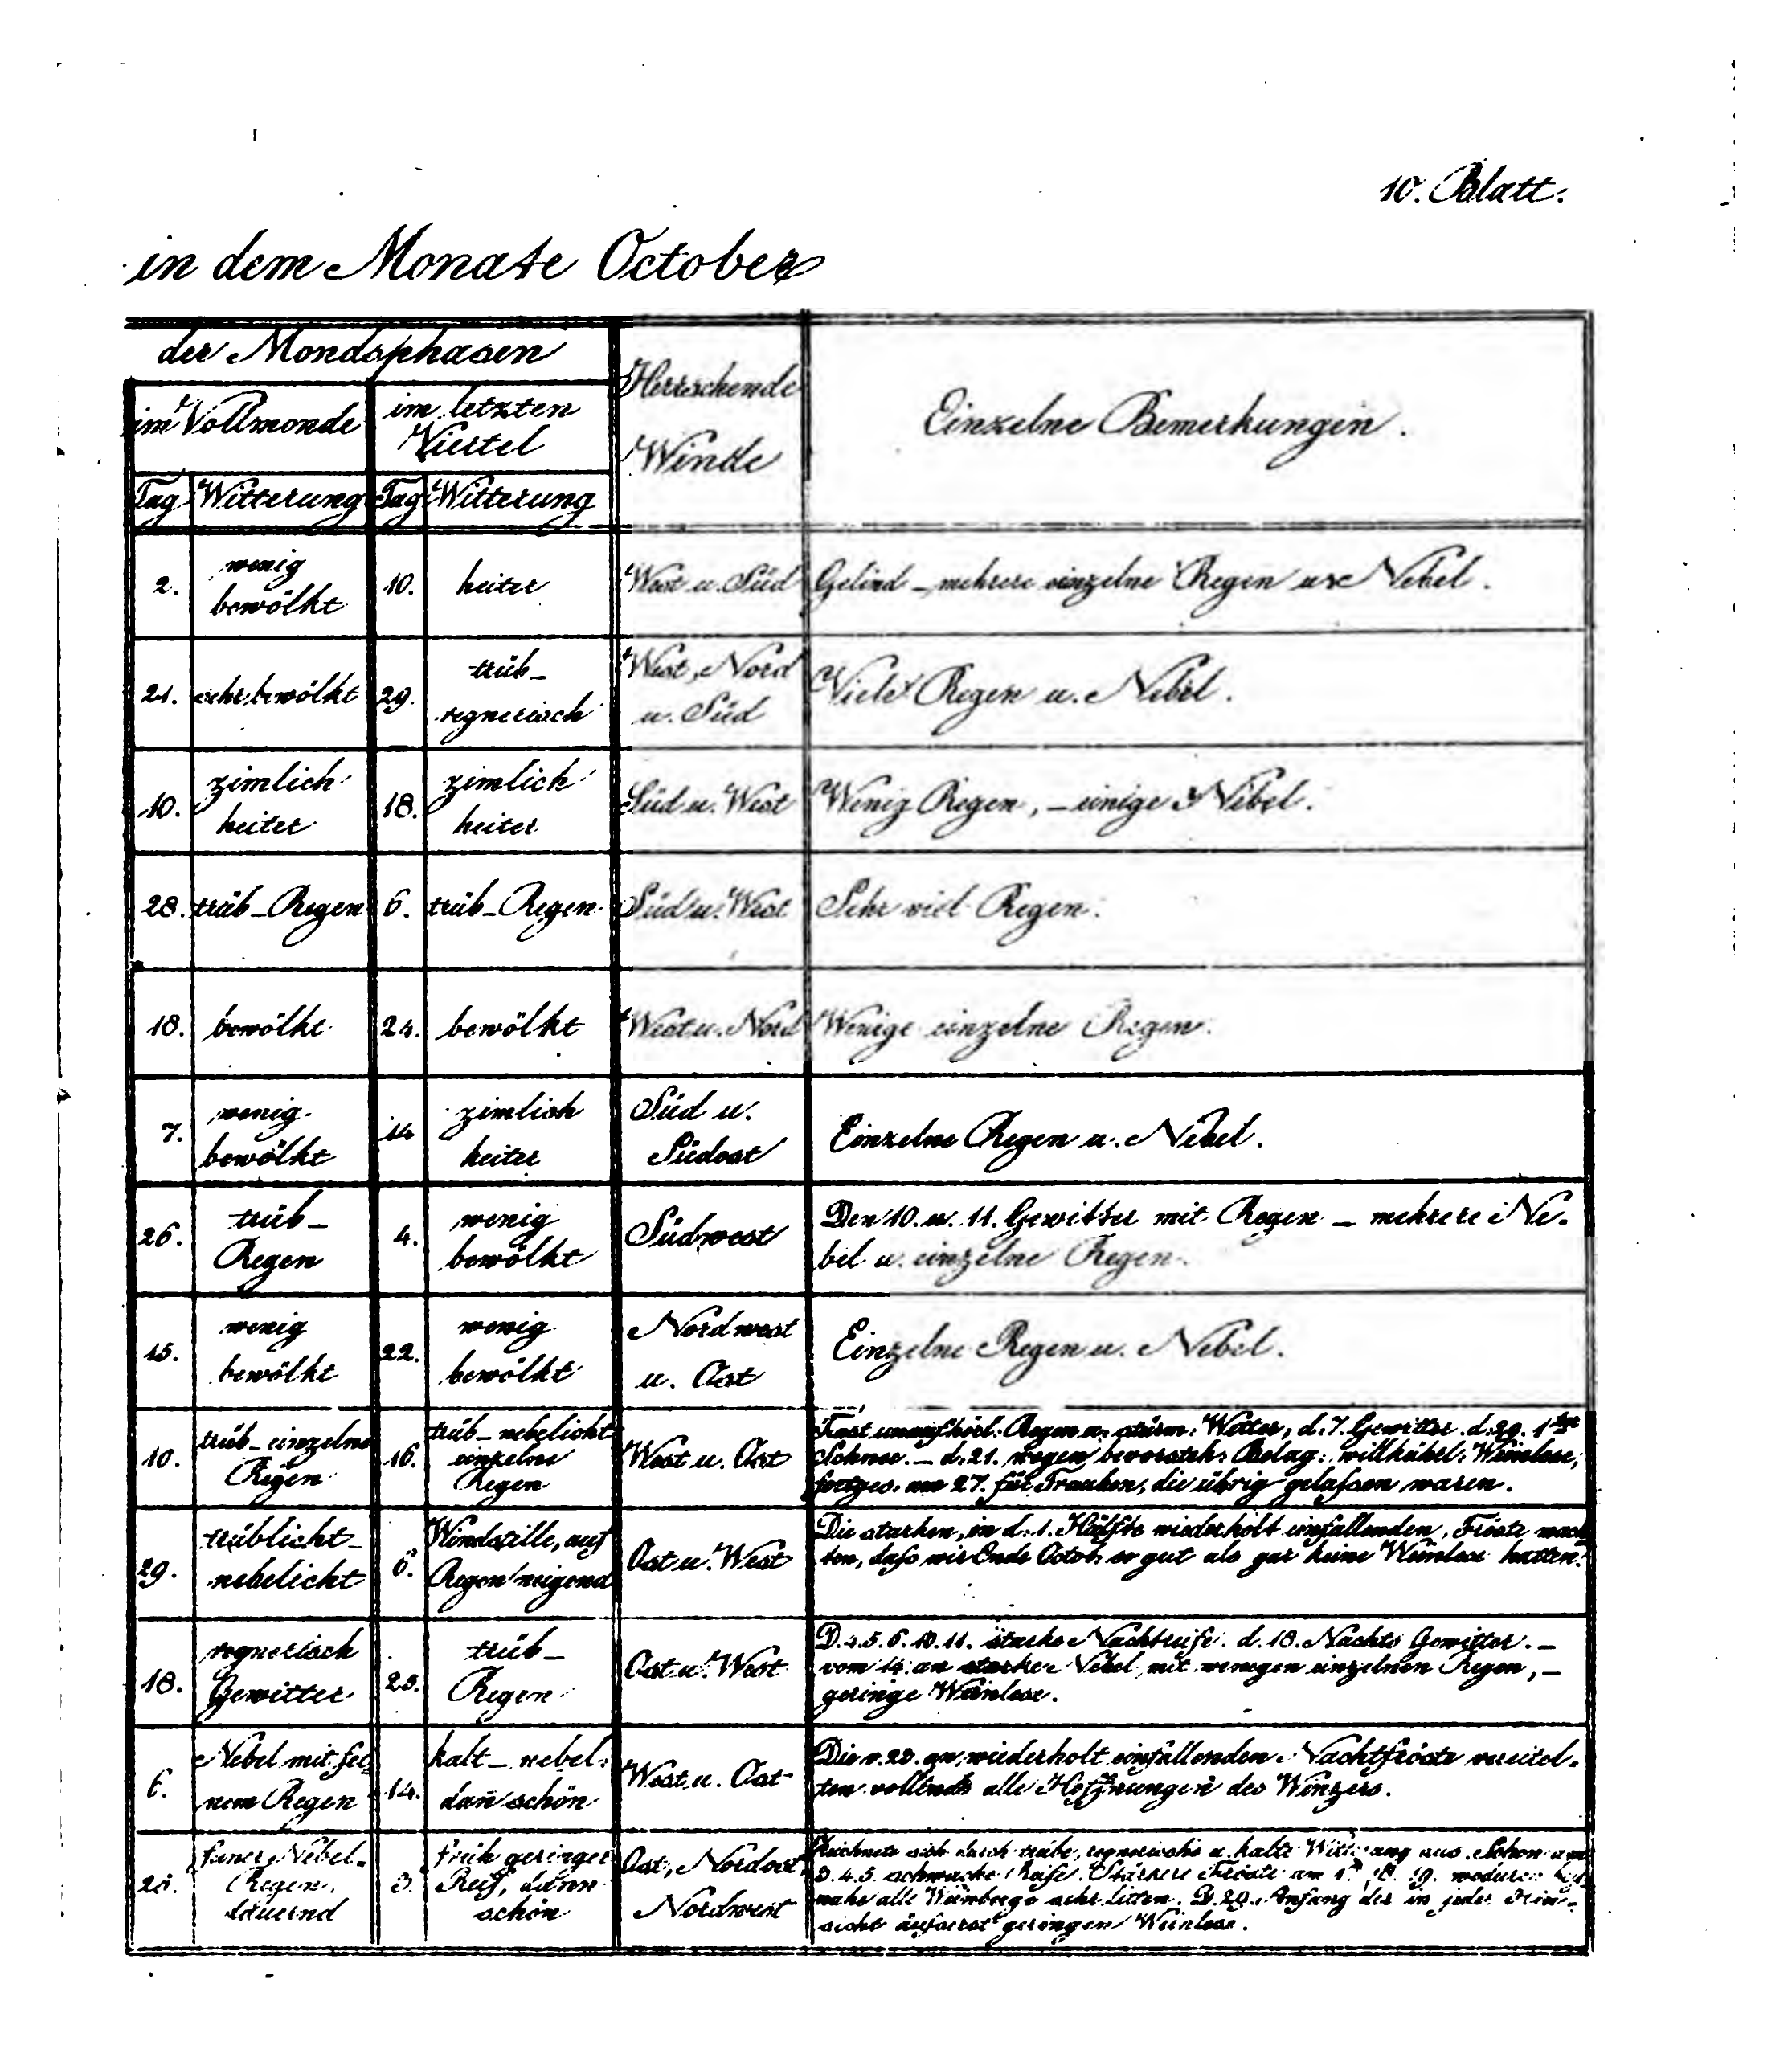 10. Blatt.
in dem Monate October
der Mondsphasen
Herrschende
Winde
Einzelne Bemerkungen.
im Vollmonde
im letzten
Viertel
Tag Witterung Tag Witterung
2. wenig bewölkt 10. heiter West u. Süd Gelind – mehrere einzelne Regen u. Nebel.
21. sehr bewölkt 29. trüb – regnerisch West, Nord u. Süd Viele Regen u. Nebel.
10. zimlich heiter 18. zimlich heiter Süd u. West Wenig Regen, – einige Nebel.
28. trüb – Regen 6. trüb – Regen Süd u. West Sehr viel Regen.
18. bewölkt 24. bewölkt West u. Nord Wenige einzelne Regen.
7. wenig bewölkt 14 zimlich heiter Süd u. Südost Einzelne Regen u. Nebel.
26. trüb – Regen 4. wenig bewölkt Südwest Den 10. u. 11. Gewitter mit Regen – mehrere Ne-
bel u. einzelne Regen.
15. wenig bewölkt 22. wenig bewölkt Nordwest u. Ost Einzelne Regen u. Nebel.
10. trüb – einzelne Regen 16. trüb – nebelicht einzelne Regen West u. Ost Fast unaufhörl: Regen u. stürm: Wetter, d. 7. Gewitter. d. 29. 1ter
Schnee. – d. 21. wegen bevorsteh: Belag: willkühel: Weinlese,
fortges. am 27. für Trauben, die übrig gelaßen waren.
29. trüblicht – nebelicht 6. Windstille, auf Regen neigend Ost u. West Die starken, in d. 1. Hälfte wiederholt einfallenden Fröste mach
ten, daß wir Ende Octob. so gut als gar keine Weinlese hatten.
18. regnerisch Gewitter 25. trüb – Regen Ost u. West D. 4. 5. 6. 10. 11. starke Nachtreife. d. 18. Nachts Gewitter. –
vom 14. an starke Nebel, mit wenigen einzelnen Regen, –
geringe Weinlese.
6. Nebel mit fei- nem Regen 14. kalt – nebel: dañ schön West u. Ost Die v. 20. an wiederholt einfallenden Nachtfröste vereitel-
ten vollends alle Hoffnungen des Winzers.
25. feiner Nebel- Regen, dauernd 3. früh geringer Reif, dann schön Ost, Nordost, Nordwest Zeichnete sich durch trübe, regnerische u. kalte Witterung aus. Schon am
3. 4. 5. schwache Reife. Stärkere Fröste am 18. 19. wodurch bei-
nahe alle Weinberge sehr litten. D. 20. Anfang der in jeder Hin-
sicht äußerst geringen Weinlese.